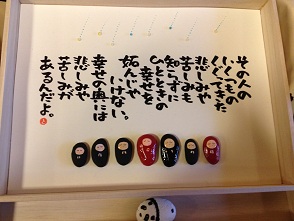 その人の
いくつもの
くぐってきた
悲しみや
苦しみも
知らずに
ひとときの
幸せを
妬んじゃ
いけない。
幸せの奥には
悲しみや
苦しみが
あるんだよ。